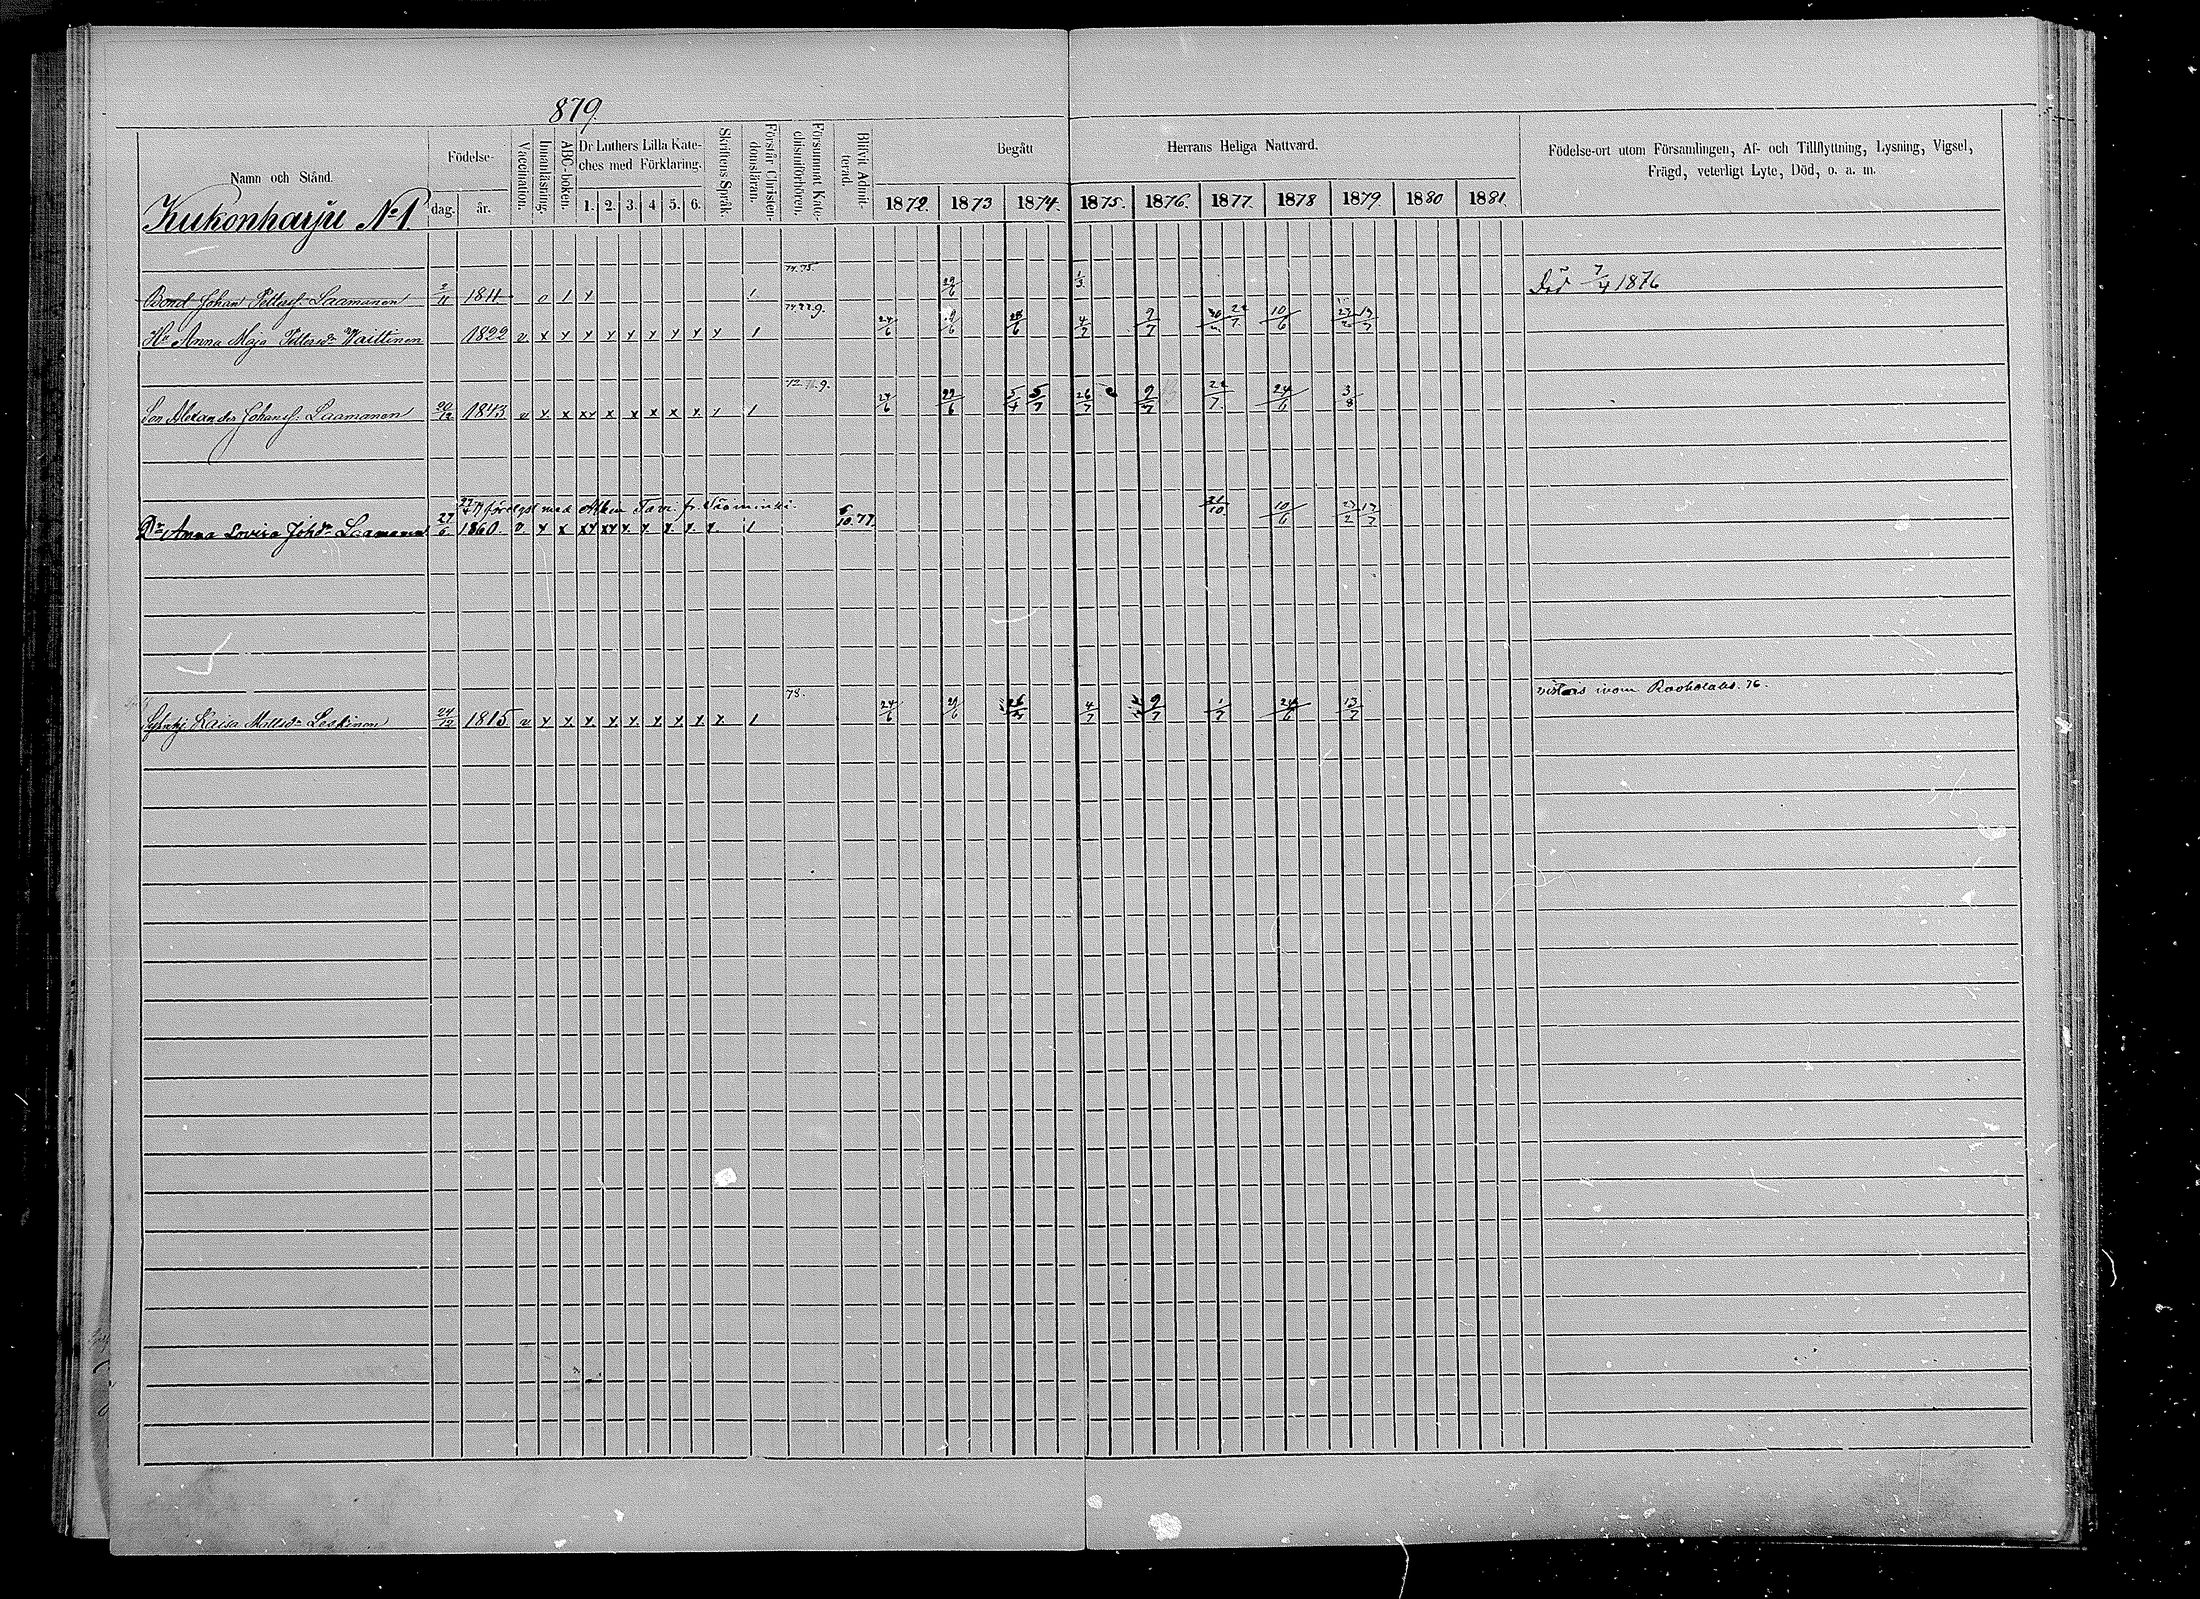 879.
Namn och Stånd.
Födelse-
dag.
år.
Vaccination.
Innanläsning.
ABC-boken.
Dr Luthers Lilla Kate-
ches med Förklaring.
1. 2. 3. 4 5. 6.
Skriftens Språk.
Förstår Christen-
domsläran.
Försummat Kate-
chismiförhören.
Blifvit Admit-
terad.
Begått Herrans Heliga Nattvard.
1872. 1873 1874. 1875. 1876. 1877. 1878 1879 1880 1881
Födelse-ort utom Församlingen, Af- och Tillflyttning, Lysning, Vigsel,
Frägd, veterligt Lyte, Död, o. a. m.
Kukonharju No 1.
74. 75.
Bond. Johan Pettersf. Laamanen 2/11 1811 o 1 x 1 29/6 1/3 Död 7/4 1876
Hu Anna Maja Pettersdr Waittinen 1822 v x x x x x x x x x 1 24/6 4/7 9/7 10/6
Son Alexander Johansf. Laamanen 20/12 1843 v x x xx x x x x x x 1 24/6 29/6 5/7 26/7 9/7 22/7 24/6 3/8
Dr Anna Lovisa Johdr Laamanen 27/6 1860. v. x x xx xx x. x. x. x. x. 1 10.77. 21/10 10/6 17/7
78.
Kaisa Mattsdr Leskinen 24/12 1815 v x x x x x x x x x 1 24/6 29/6 4/7 9/7 1/7 24/6 13/7
vistas inom 76.